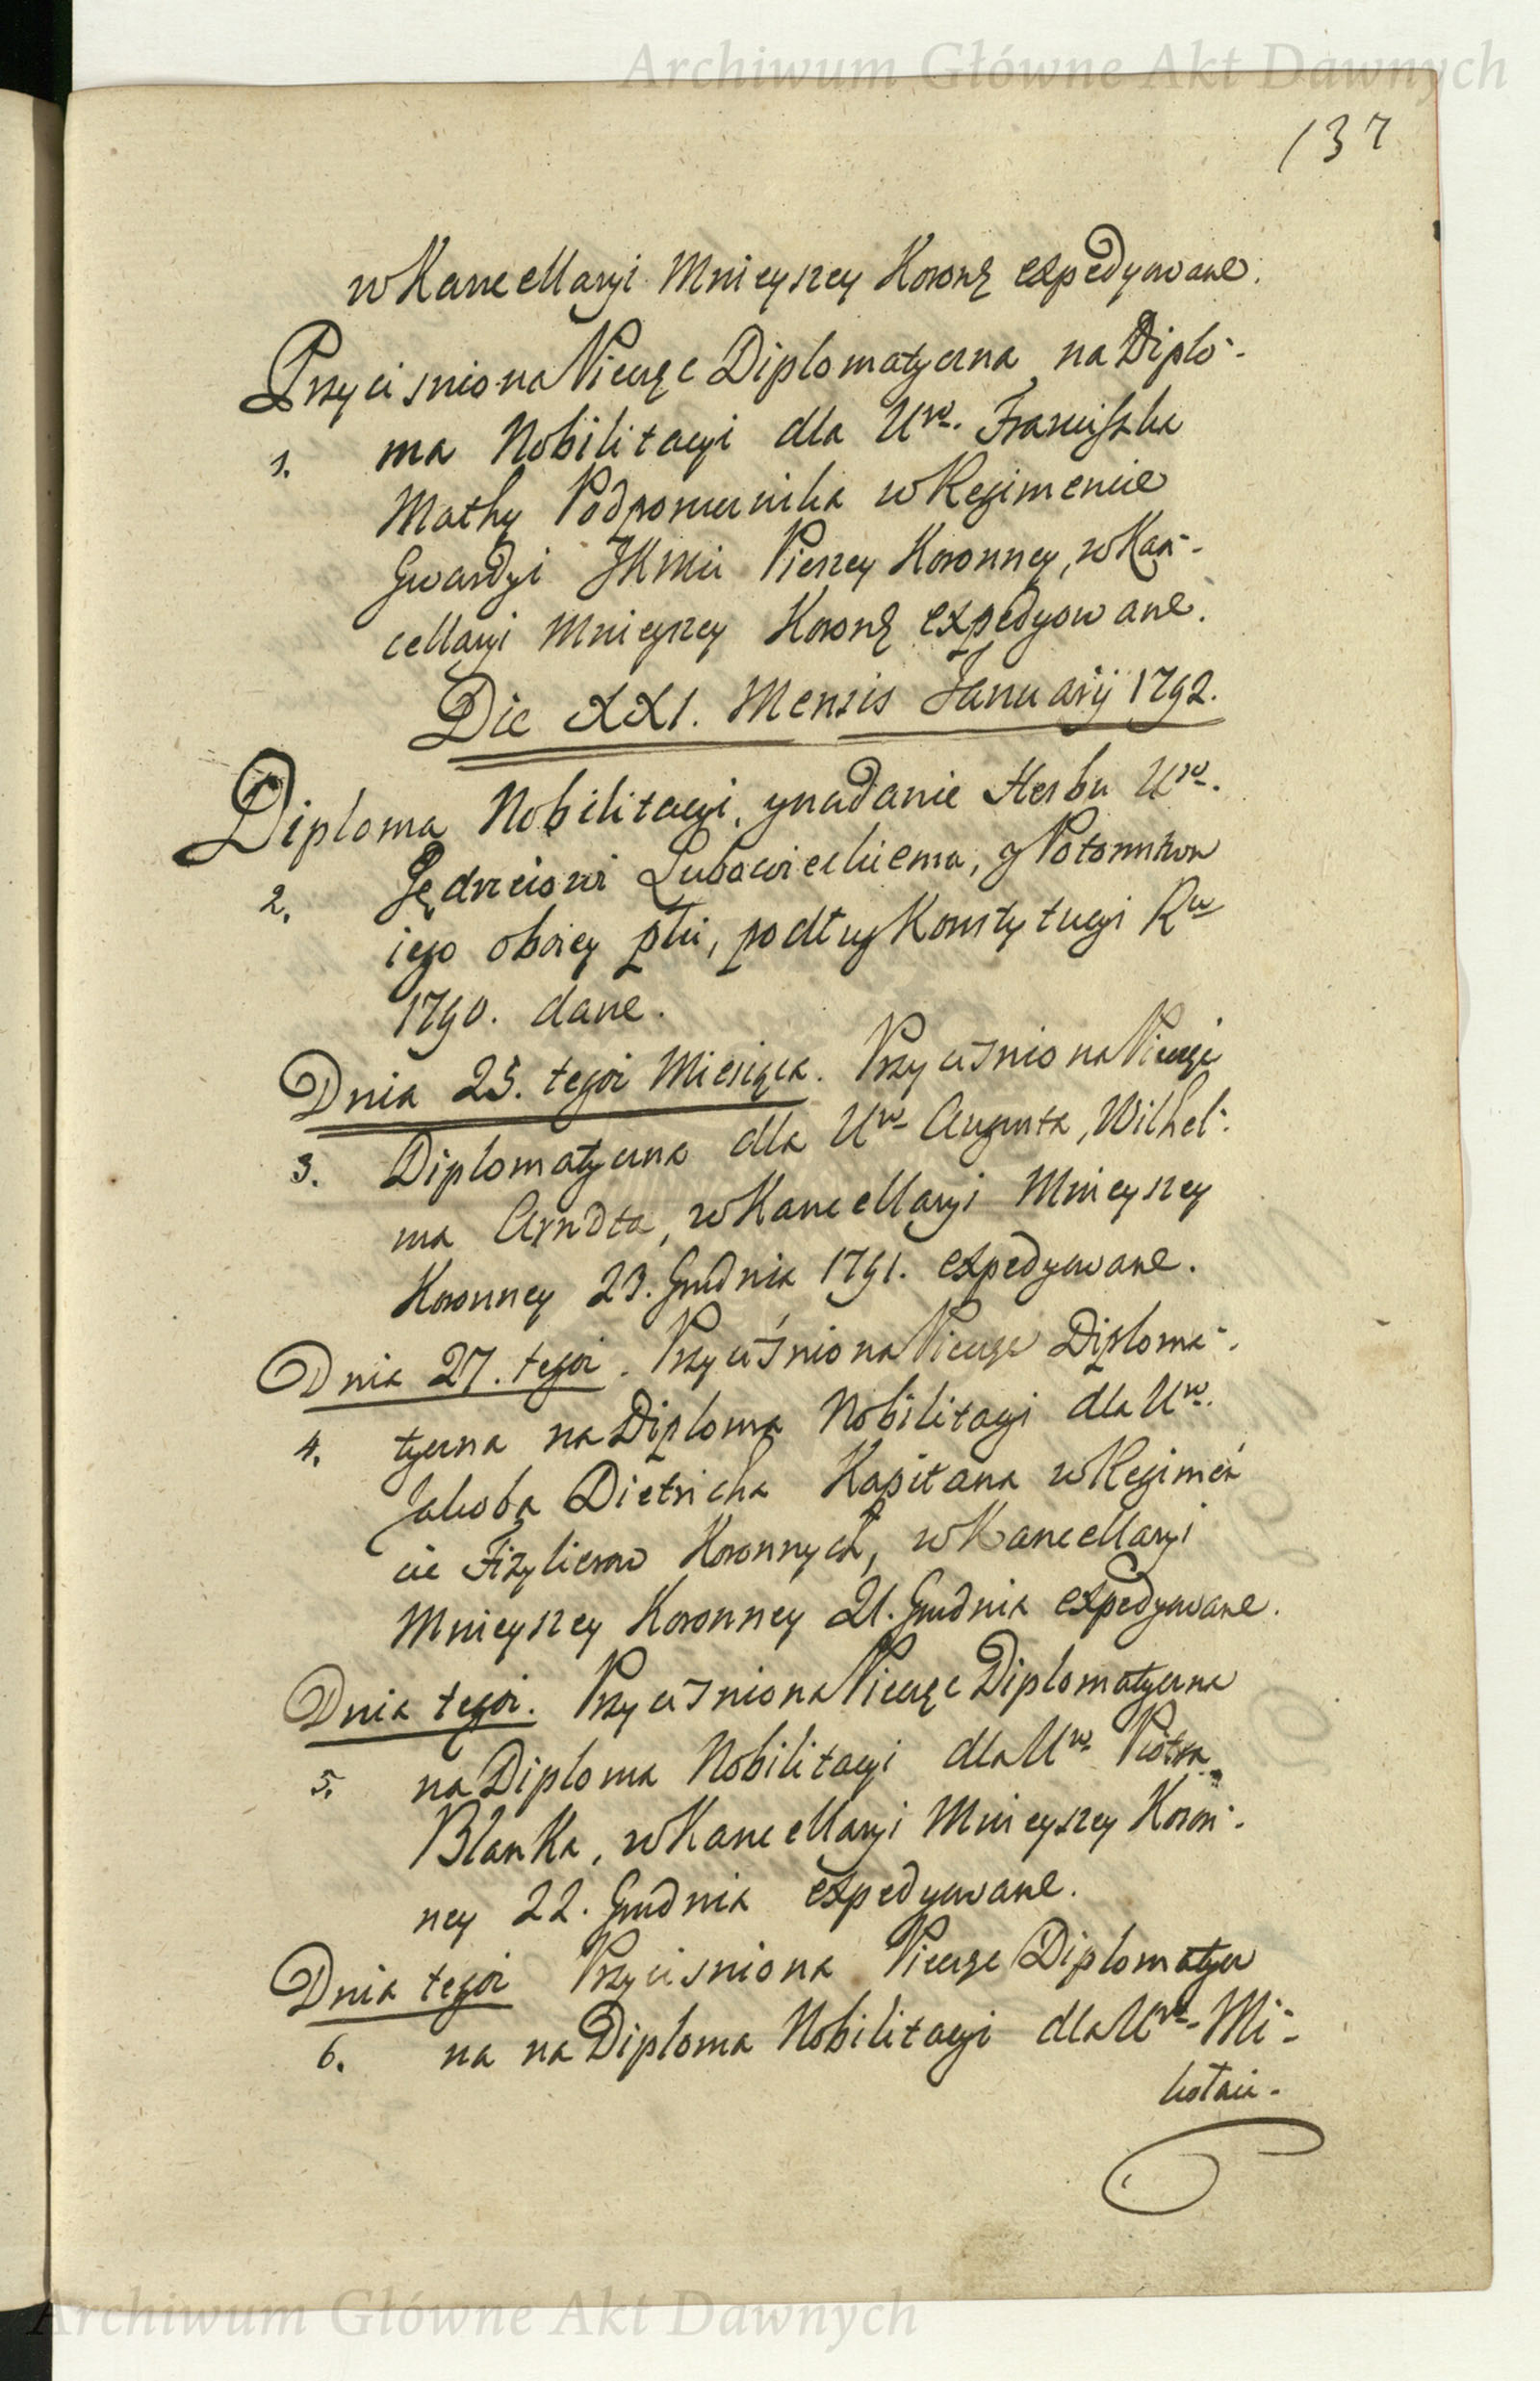 Archiwum Główne Akt Dawnych
137
w Kancellaryi Mnieyszey Koronę expedyowane.
Przyciśniona Pieczęc Diplomatyczna na Diplo-
1. ma Nobilitacyi dla Uro. Franciszka
Mathy Podporucznika w Regimencie
Gwardyi JKMci Pieszey Koronney, w Kan-
cellaryi Mnieyszey Koronę expedyowane.
Die XXI. Mensis Januarij 1792.
Diploma Nobilitacyi, y nadanie Herbu Uro.
2. Jędrzeiowi Lubowieckiemu, y Potomstwu
iego oboiey płci, podług Konstytucyi Ru
1790. dane.
Dnia 25. tegoż Miesiąca. Przyciśniona Pieczęć
3. Diplomatyczna dla Uro Augusta, Wilhel-
ma Arndta, w Kancellaryi Mnieyszey
Koronney 23. Grudnia 1791. expedyowane.
Dnia 27. tegoż. Przyciśniona Pieczęc Diploma-
4. tyczna na Diploma Nobilitacyi dla Uro.
Jakoba Dietricha Kapitana w Regimen
cie Fizylierow Koronnych, w Kancellaryi
Mnieyszey Koronney 21. Grudnia expedyowane.
Dnia tegoż. Przyciśniona Pieczęc Diplomatyczna
5. na Diploma Nobilitacyi dla Uro Piotra
Blanka, w Kancellaryi Mnieyszey Koron-
ney 22. Grudnia expedyowane.
Dnia tegoż Przyciśniona Pieczęc Diplomatycz
6. na na Diploma Nobilitacyi dla Uro Mi-
kołaia.
Archiwum Główne Akt Dawnych